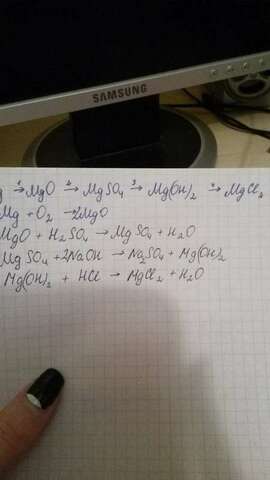 SAMSUNG
g ¹→ MgO ²→ MgSO₄ ³→ Mg(OH)₂ → MgCl₂
Mg + O₂ → 2MgO
MgO + H₂SO₄ → MgSO₄ + H₂O
MgSO₄ + 2NaOH → Na₂SO₄ + Mg(OH)₂
Mg(OH)₂ + HCl → MgCl₂ + H₂O